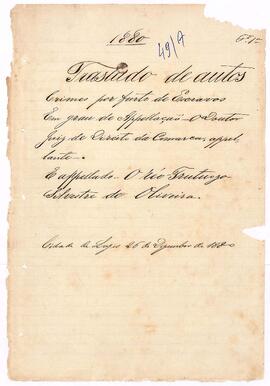 1880
49/9
Traslado de autos
Crimes por furto de Escravos
Em grau de Appellação - O Doutor
Juiz de Direito da Comarca, appel
lante -.
E appellado - O réo Fructuozo
Silvestre de Oliveira.
Cidade de Lages 26 de Dezembro de 1880